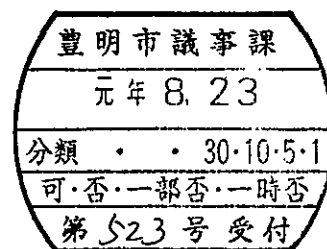 豊明市議事課
元年 8.23
分類 ・ ・ 30・10・5・1
可・否・一部否・一時否
第523号受付